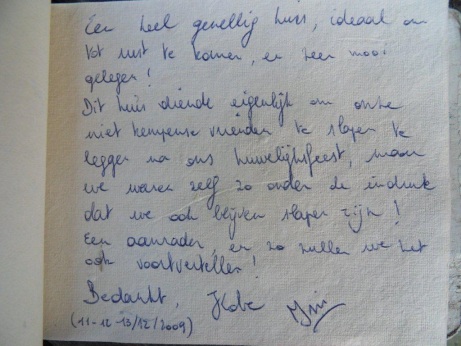 Een heel gezellig huis, ideaal om
tot rust te komen, en zeer mooi
gelegen!
Dit huis diende eigenlijk om onze
niet kempense vrienden te slapen te
leggen na ons huwelijksfeest, maar
we waren zelf zo onder de indruk
dat we ook blijven slapen zijn!
Een aanrader, en zo zullen we het
ook voortvertellen!
Bedankt,
(11-12-13/12/2009)